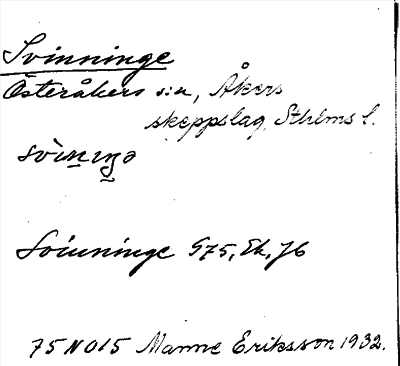 Svinninge
Österåkers s:n, Åkers
skeppslag, Sthlms l.
Svinninge G75, Ek, J6
75 N O15 Manne Eriksson 1932.